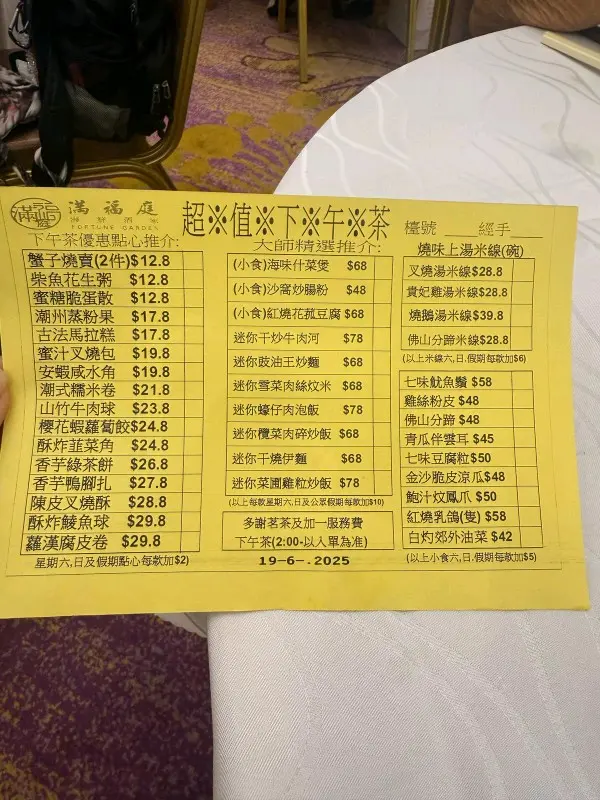 滿福庭
海鮮酒家
FORTUNE GARDEN
超※值※下※午※茶
檯號____經手____
下午茶優惠點心推介:
蟹子燒賣(2件)$12.8
柴魚花生粥 $12.8
蜜糖脆蛋散 $12.8
潮州蒸粉果 $17.8
古法馬拉糕 $17.8
蜜汁叉燒包 $19.8
安蝦咸水角 $19.8
潮式糯米卷 $21.8
山竹牛肉球 $23.8
櫻花蝦蘿蔔餃$24.8
酥炸韮菜角 $24.8
香芋綠茶餅 $26.8
香芋鴨腳扎 $27.8
陳皮叉燒酥 $28.8
酥炸鯪魚球 $29.8
羅漢腐皮卷 $29.8
星期六,日及假期點心每款加$2)
大師精選推介:
(小食)海味什菜煲 $68
(小食)沙窩炒腸粉 $48
(小食)紅燒花菰豆腐 $68
迷你干炒牛肉河 $78
迷你豉油王炒麵 $68
迷你雪菜肉絲炆米 $68
迷你蠔仔肉泡飯 $78
迷你欖菜肉碎炒飯 $68
迷你干燒伊麵 $68
迷你菜圃雞粒炒飯 $78
(以上每款星期六,日及公眾假期每款加$10)
多謝茗茶及加一服務費
下午茶(2:00-以入單為准)
19-6-.2025
燒味上湯米線(碗)
叉燒湯米線$28.8
貴妃雞湯米線$28.8
燒鵝湯米線$39.8
佛山分蹄米線$28.8
(以上米線六,日.假期每款加$6)
七味魷魚鬚 $58
雞絲粉皮 $48
佛山分蹄 $48
青瓜伴雲耳 $45
七味豆腐粒 $50
金沙脆皮涼瓜$48
鮑汁炆鳳爪 $50
紅燒乳鴿(隻) $58
白灼郊外油菜 $42
(以上小食六,日.假期每款加$5)